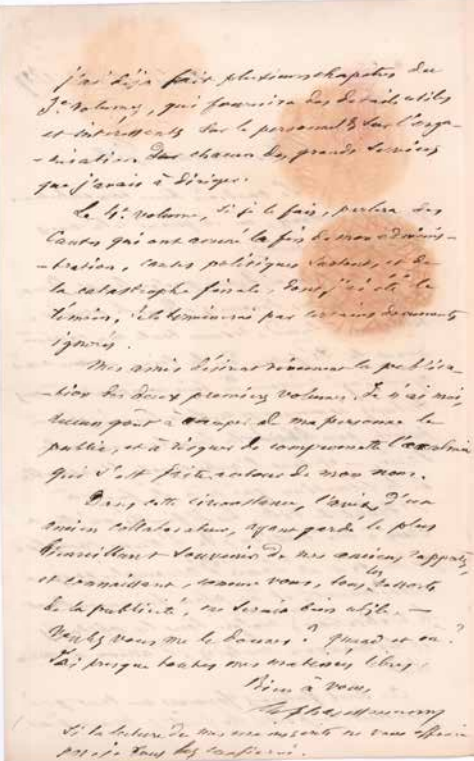 j'ai déjà fait plusieurs chapitres du
3e. volume, qui fournira des détails utiles
et intéressants sur le personnel & sur l'orga-
-nisation de chacun des grands services
que j'avais à diriger.
Le 4e. volume, si je le fais, parlera des
causes qui ont amené la fin de mon adminis-
-tration, causes politiques surtout, et de
la catastrophe finale, dont j'ai été le
témoin, & le terminerai par certains documents
ignorés.
Mes amis désirent vivement la publica-
-tion des deux premiers volumes. Je n'ai moi,
aucun goût à occuper de ma personne le
public, et à risquer de compromettre l'accalmie
qui s'est faite autour de mon nom.
Dans cette circonstance, l'avis d'un
ancien collaborateur, ayant gardé le plus
bienveillant souvenir de nos anciens rapports,
et connaissant, comme vous, tous les ressorts
de la publicité, me serait bien utile. —
Voulez vous me le donner? quand et où?
J'ai presque toutes mes matinées libres.
Bien à vous,
si la lecture de mes manuscrits ne vous effraie
pas je vous les confierai.